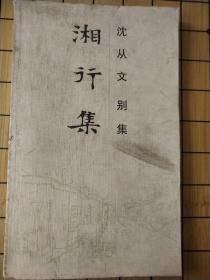 沈从文别集
湘行集